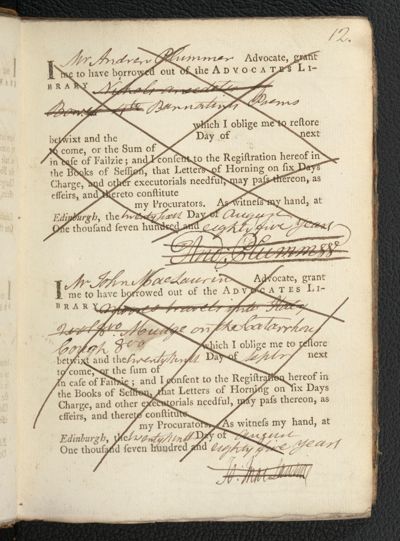 12.
I Mr Andrew Plummer Advocate, grant
me to have borrowed out of the ADVOCATES LI-
BRARY Nichols anecdotes of
Bowyer 4to Bannatine Poems
which I oblige me to reſtore
betwixt and the Day of next
to come, or the Sum of
in caſe of Failzie; and I conſent to the Regiſtration hereof in
the Books of Seſſion, that Letters of Horning on ſix Days
Charge, and other executorials needful, may paſs thereon, as
effeirs, and thereto conſtitute
my Procurators. As witneſs my hand, at
Edinburgh, the twenty third Day of August
One thouſand ſeven hundred and eighty five years
And. Plummer
I Mr John MacLaurin Advocate, grant
me to have borrowed out of the ADVOCATES LI-
BRARY travels into Italy
8vo Mudge on the Catarrhous
Cough 8vo which I oblige me to reſtore
betwixt and the twenty third Day of Septr next
to come, or the ſum of
in caſe of Failzie; and I conſent to the Regiſtration hereof in
the Books of Seſſion, that Letters of Horning on ſix Days
Charge, and other executorials needful, may paſs thereon, as
effeirs, and thereto conſtitute
my Procurators. As witneſs my hand, at
Edinburgh, the twenty third Day of August
One thouſand ſeven hundred and eighty five years
Jo. MacLaurin